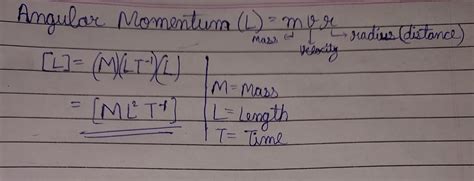 Angular Momentum (L) = m v r
Mass velocity radius (distance)
[L] = (M)(LT⁻¹)(L)
= [ML²T⁻¹]
M = Mass
L = Length
T = Time